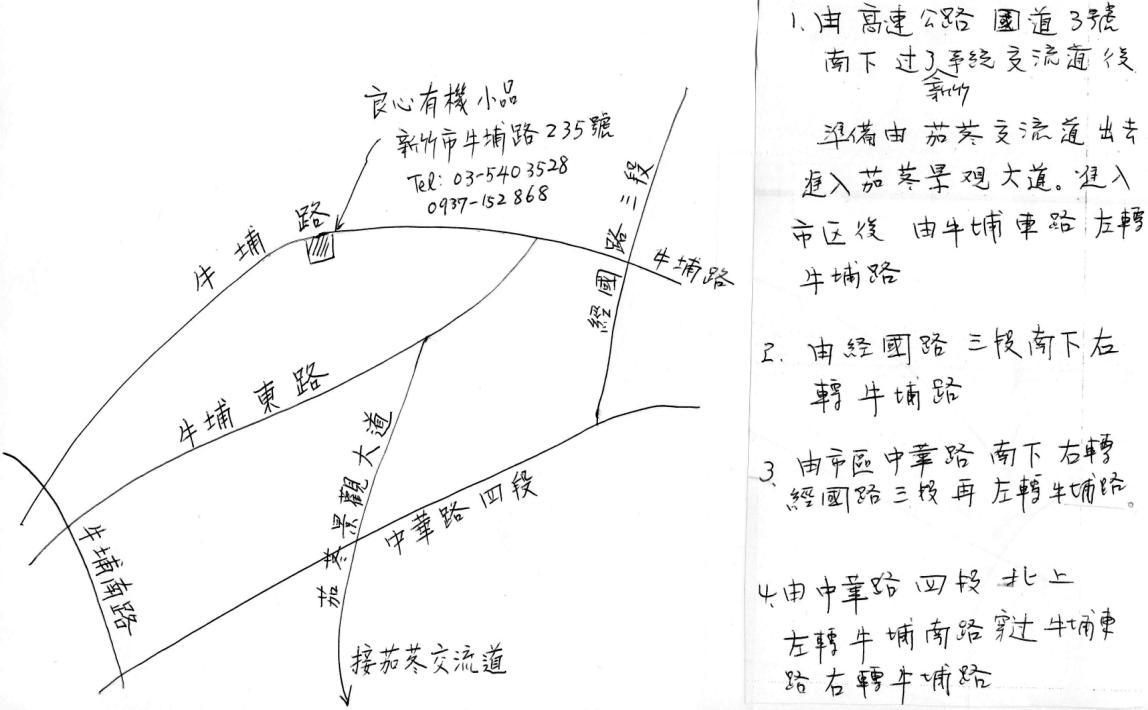 良心有機小品
新竹市牛埔路235號
Tel: 03-5403528
0937-152868
牛埔路
牛埔東路
牛埔南路
茄苳景觀大道
中華路四段
經國路三段
牛埔路
接茄苳交流道
1. 由高速公路國道3號
南下过了新竹系統交流道後
準備由茄苳交流道出去
進入茄苳景观大道。進入
市区後 由牛埔東路左轉
牛埔路
2. 由経國路三段南下右
轉牛埔路
3. 由市區中華路南下右轉
經國路三段再左轉牛埔路。
4. 由中華路四段北上
左轉牛埔南路穿过牛埔東
路右轉牛埔路